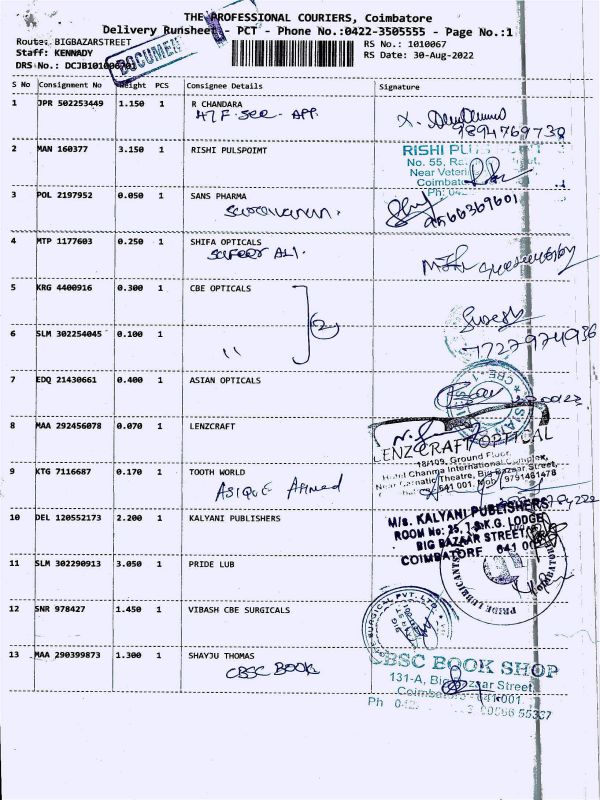 THE PROFESSIONAL COURIERS, Coimbatore
Delivery Runsheet - PCT - Phone No.:0422-3505555 - Page No.:1
Route: BIGBAZARSTREET
RS No.: 1010067
Staff: KENNADY
RS Date: 30-Aug-2022
DRS No.: DCJB1010067
DOCUMEN
S No Consignment No Weight PCS Consignee Details Signature
1 JPR 502253449 1.150 1 R CHANDARA
9894769738
2 MAN 160377 3.150 1 RISHI PULSPOIMT
RISHI
No. 55,
Near
Coimbat
Ph: 04
3 POL 2197952 0.050 1 SANS PHARMA
Saravanan.
9566369601
4 MTP 1177603 0.250 1 SHIFA OPTICALS
Safeer ALI.
5 KRG 4400916 0.300 1 CBE OPTICALS
2
Suresh
6 SLM 302254045 0.100 1
"
7 EDQ 21430661 0.400 1 ASIAN OPTICALS
8 MAA 292456078 0.070 1 LENZCRAFT
LENZCRAFT OPTICAL
18/109, Ground Floor,
Hotel Channma International Complex,
Near Carnatic Theatre, Big Bazaar Street,
641 001. Mob: 9791461478
9 KTG 7116687 0.170 1 TOOTH WORLD
ASIQUE Ahmed
10 DEL 120552173 2.200 1 KALYANI PUBLISHERS
M/s. KALYANI PUBLISHERS
ROOM No: 25, K.G. LODGE
BIG BAZAAR STREET
COIMBATORE 641 001
11 SLM 302290913 3.050 1 PRIDE LUB
PRIDE LUBRICANTS
12 SNR 978427 1.450 1 VIBASH CBE SURGICALS
SURGICAL PVT. LTD.
13 MAA 290399873 1.300 1 SHAYJU THOMAS
CBSC BOOK
CBSC BOOK SHOP
131-A, Big Bazaar Street,
Coimbatore - 641001.
Ph